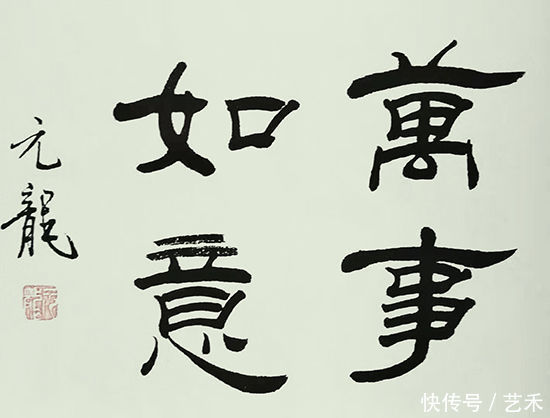 萬事
如意
元龍
快传号／艺禾